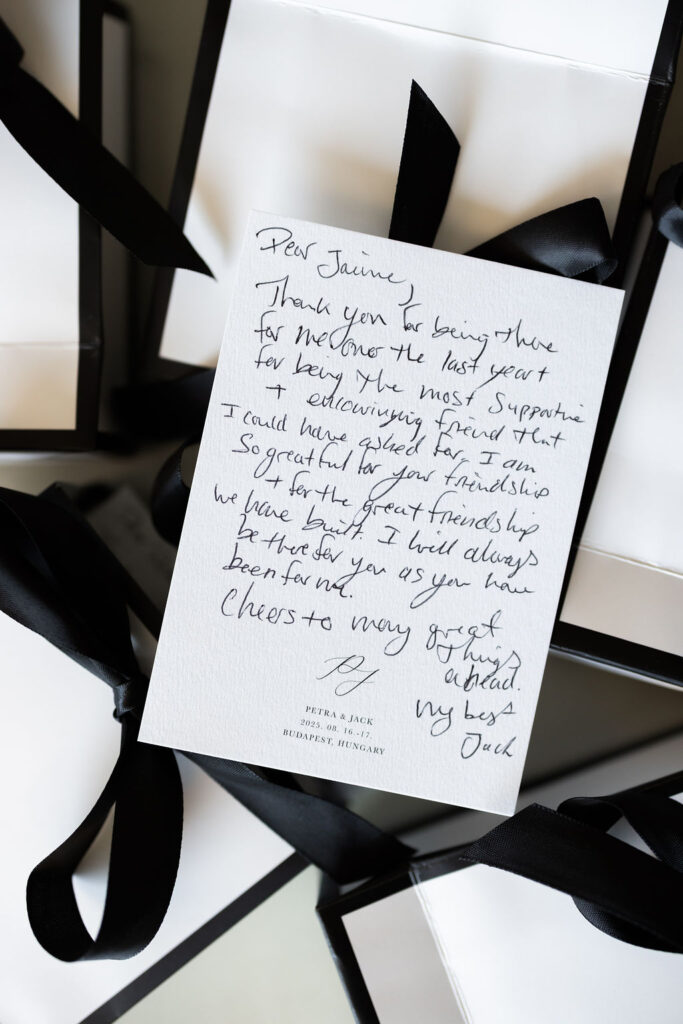 Dear Jaime,
Thank you for being there
for me over the last year +
for being the most supportive
+ encouraging friend that
I could have asked for. I am
So greatful for your friendship
+ for the great friendship
we have built. I will always
be there for you as you have
been for me.
Cheers to many great
things
ahead.
My best
Jack
PJ
PETRA & JACK
2025. 08. 16.-17.
BUDAPEST, HUNGARY